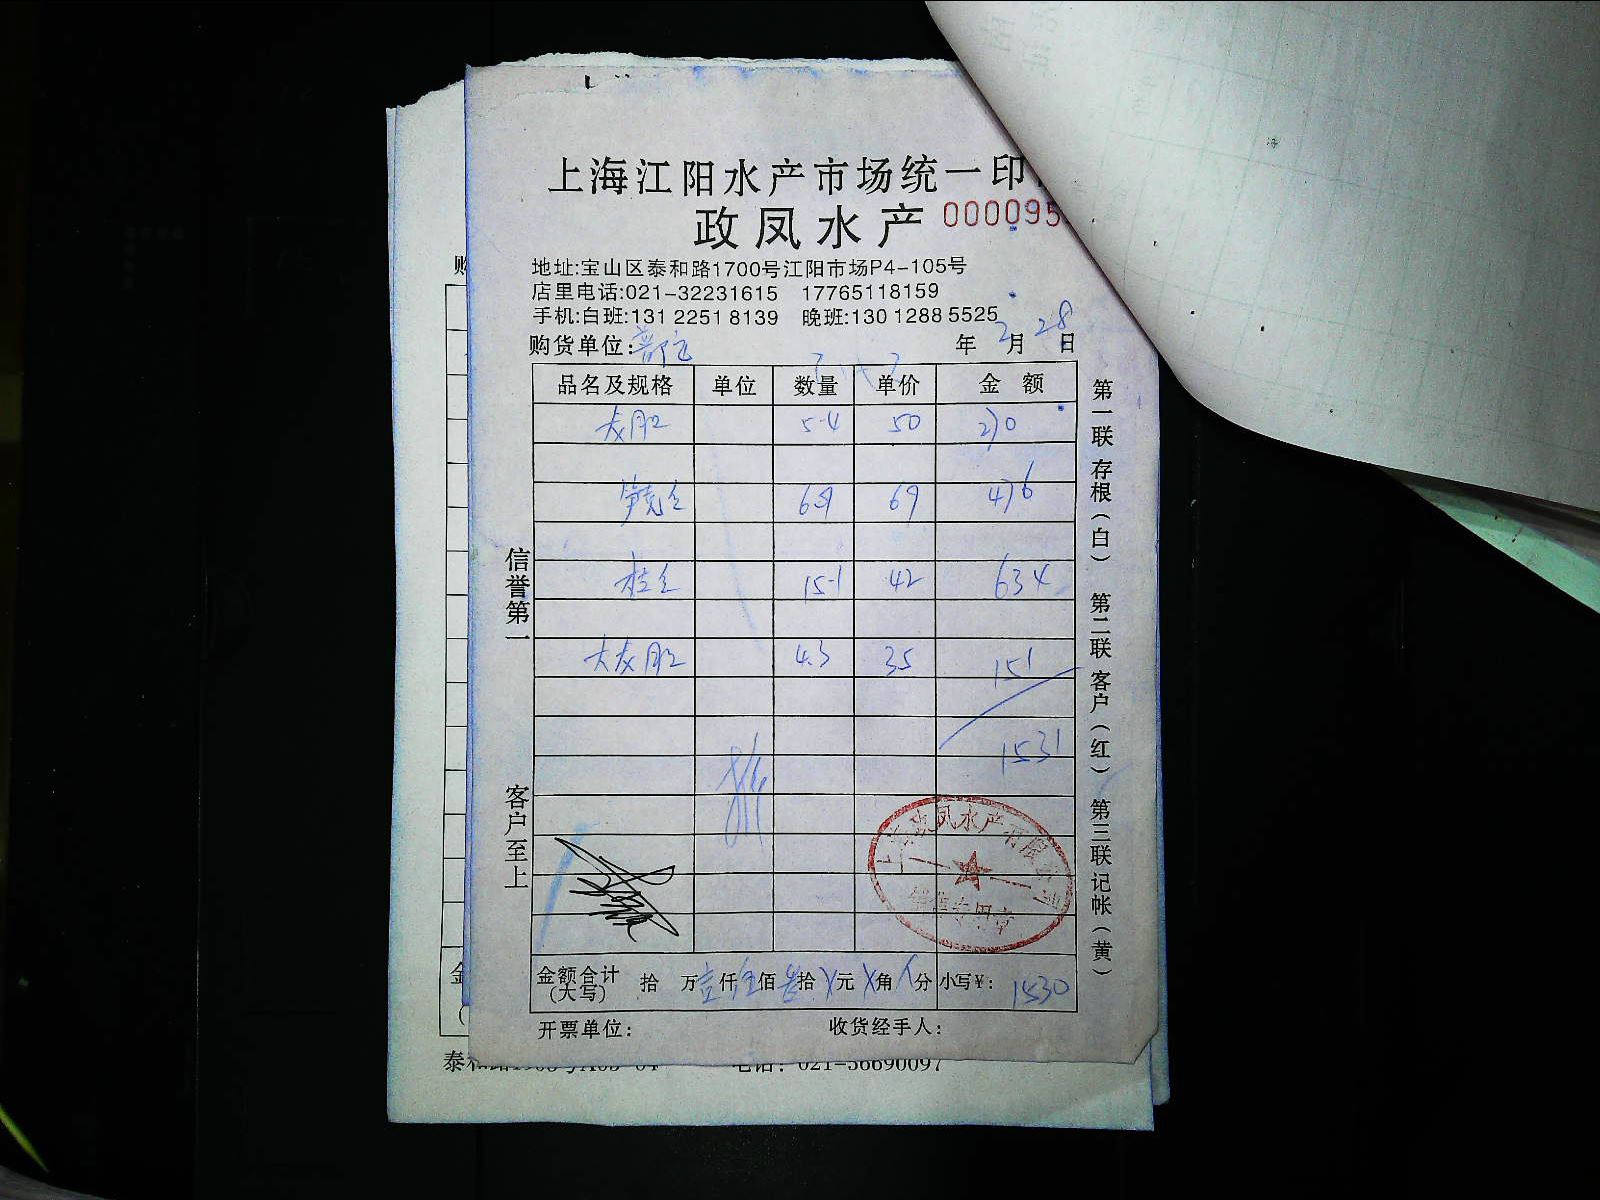 上海江阳水产市场统一印
政凤水产 000095
地址:宝山区泰和路1700号江阳市场P4-105号
店里电话:021-32231615 17765118159
手机:白班:131 2251 8139 晚班:130 1288 5525
购货单位: 年 2 月 28 日
品名及规格 单位 数量 单价 金 额
5.4 50 270
6.9 69 476
15.1 42 634
大 4.3 35 151
1531
信誉第一
客户至上
第一联 存根(白) 第二联 客户(红) 第三联 记帐(黄)
水产有限
专用章
金额合计(大写) 拾 万 壹仟 伍佰 叁拾 元 角 分 小写¥: 1530
开票单位: 收货经手人:
电话: 021-56690097